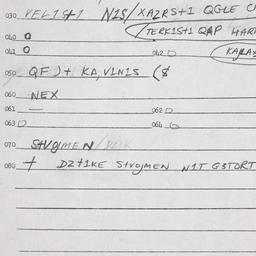 030 VFL1S+1 N1S/XAZRS+1 QGLE
040 O (TERK1S+1 QAP HAR
041 O 042 □ (KA
050 QF)+ KA,V1N1S ($
060 NEX
061 — 062 □
063 □ 064
070 S+VOJMEN/
080 + DZ+1KE S+VOJMEN N1T G3TORT